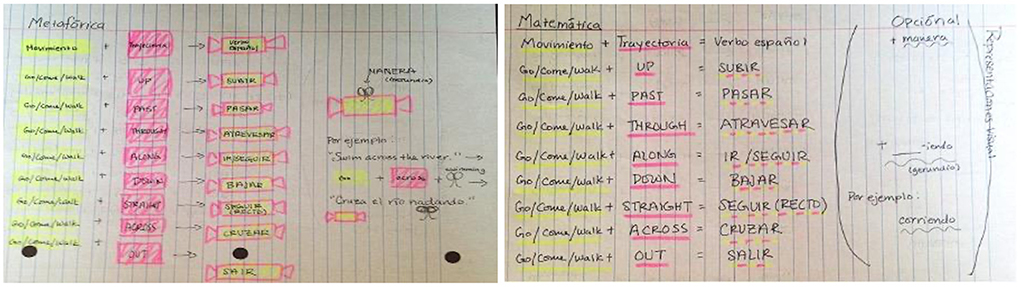 Metafórica
Movimiento + Trayectoria → Verbo español
Go/Come/Walk + UP → SUBIR
Go/Come/Walk + PAST → PASAR
Go/Come/Walk + THROUGH → ATREVESAR
Go/Come/Walk + ALONG → IR/SEGUIR
Go/Come/Walk + DOWN → BAJAR
Go/Come/Walk + STRAIGHT → SEGUIR (RECTO)
Go/Come/Walk + ACROSS → CRUZAR
Go/Come/Walk + OUT → SALIR
MANERA
(gerundio)
Por ejemplo:
"Swim across the river." →
Go + across + swimming →
"Cruza el río nadando."
Matemática
Movimiento + Trayectoria = Verbo español
Go/Come/Walk + UP = SUBIR
Go/Come/Walk + PAST = PASAR
Go/Come/Walk + THROUGH = ATRAVESAR
Go/Come/Walk + ALONG = IR/SEGUIR
Go/Come/Walk + DOWN = BAJAR
Go/Come/Walk + STRAIGHT = SEGUIR (RECTO)
Go/Come/Walk + ACROSS = CRUZAR
Go/Come/Walk + OUT = SALIR
Opciónal
+ manera
+ ____-iendo
(gerundio)
Por ejemplo:
corriendo
Representaciones Visual